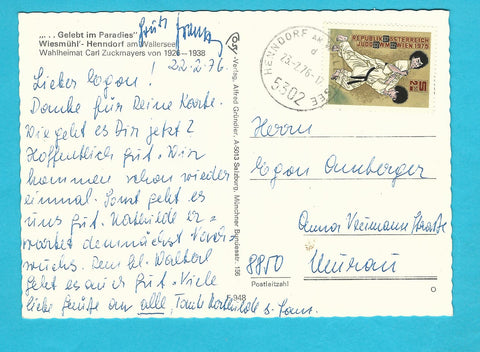 „... Gelebt im Paradies“
Wiesmühl'- Henndorf am Wallersee
Wahlheimat Carl Zuckmayers von 1926–1938
22.2.76
Lieber Egon!
Danke für Deine Karte.
Wie geht es Dir jetzt?
Hoffentlich gut. Wir
kommen schon wieder
einmal. Sonst geht es
uns gut. Mathilde er=
wartet demnächst Nach=
wuchs. Dem kl. Walterl
geht es auch gut. Viele
liebe Grüße an alle, Tante Mathilde u. Hans.
Cosy-Verlag, Alfred Gründler, A-5013 Salzburg, Münchner Bundesstr. 156
F 948
HENNDORF AM WALLERSEE
d
23.2.76-17
5302
REPUBLIK ÖSTERREICH
JUDO WM WIEN 1975
S 2.50
Herrn
Egon
Anna Neumann Straße
8850 Murau
Postleitzahl